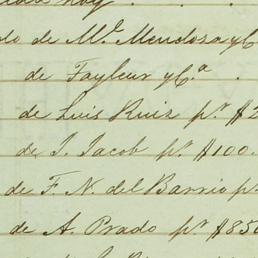 hoy . . .
do de M.ˡ Mendoza y C
de Tayleur y C.ª .
de Luis Ruiz p.ʳ $2
de J. Jacob p.ʳ $100.
de F. N. del Barrio p.
de A. Prado p.ʳ $850
de